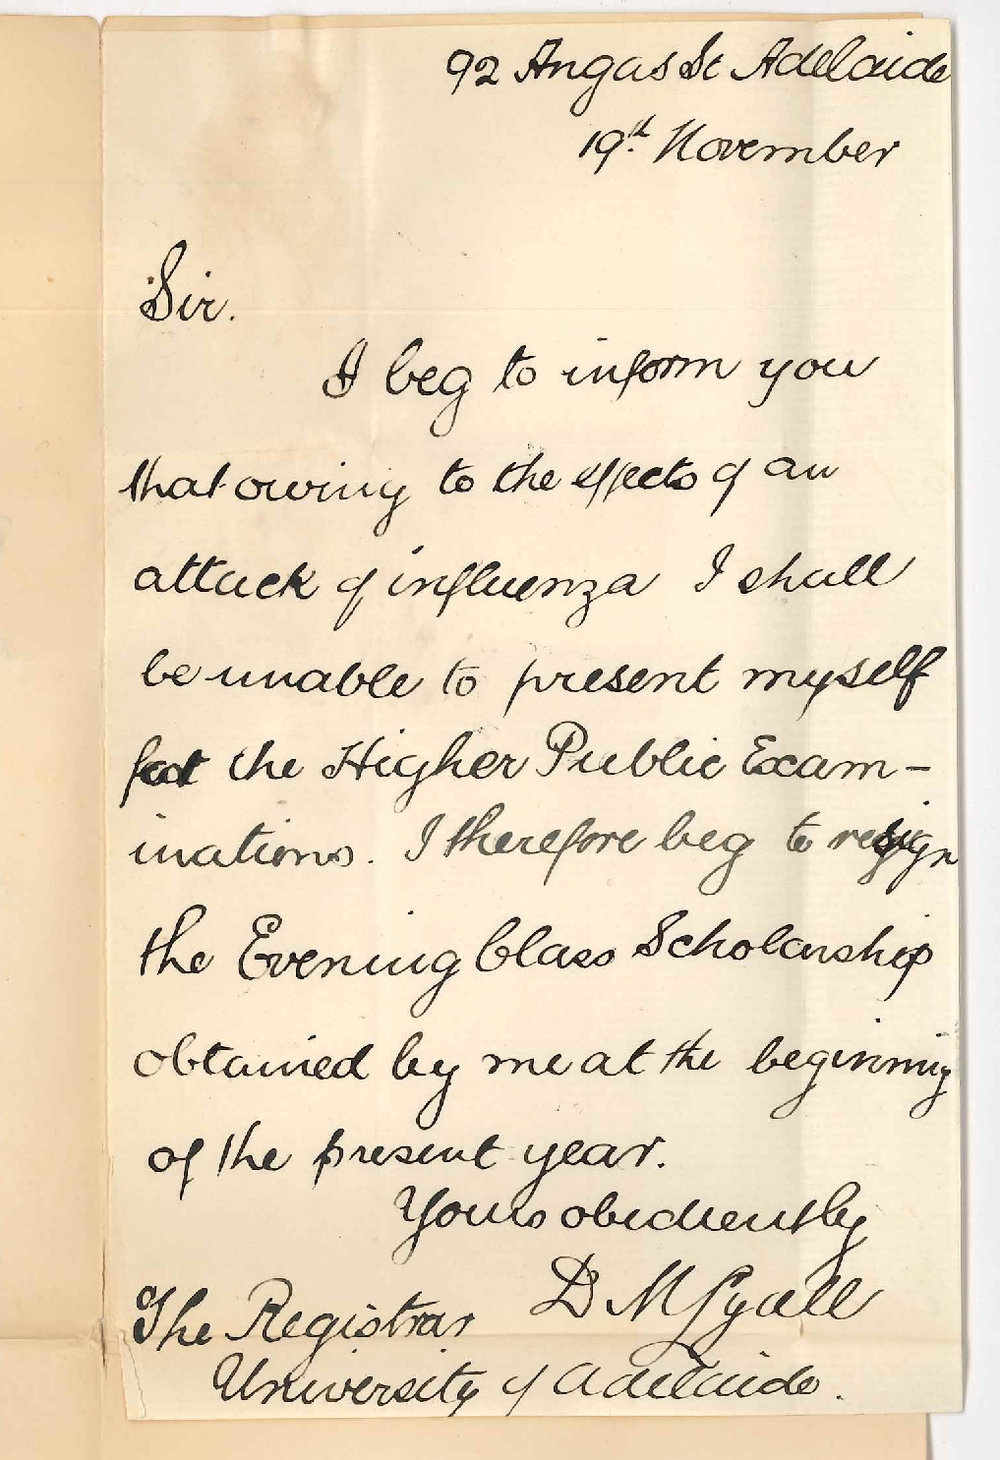 92 Angas St Adelaide
19th November
Sir.
I beg to inform you
that owing to the effects of an
attack of influenza I shall
be unable to present myself
at the Higher Public Exam-
inations. I therefore beg to resign
the Evening Class Scholarship
obtained by me at the beginning
of the present year.
Yours obediently
D M Lyall
The Registrar
University of Adelaide.